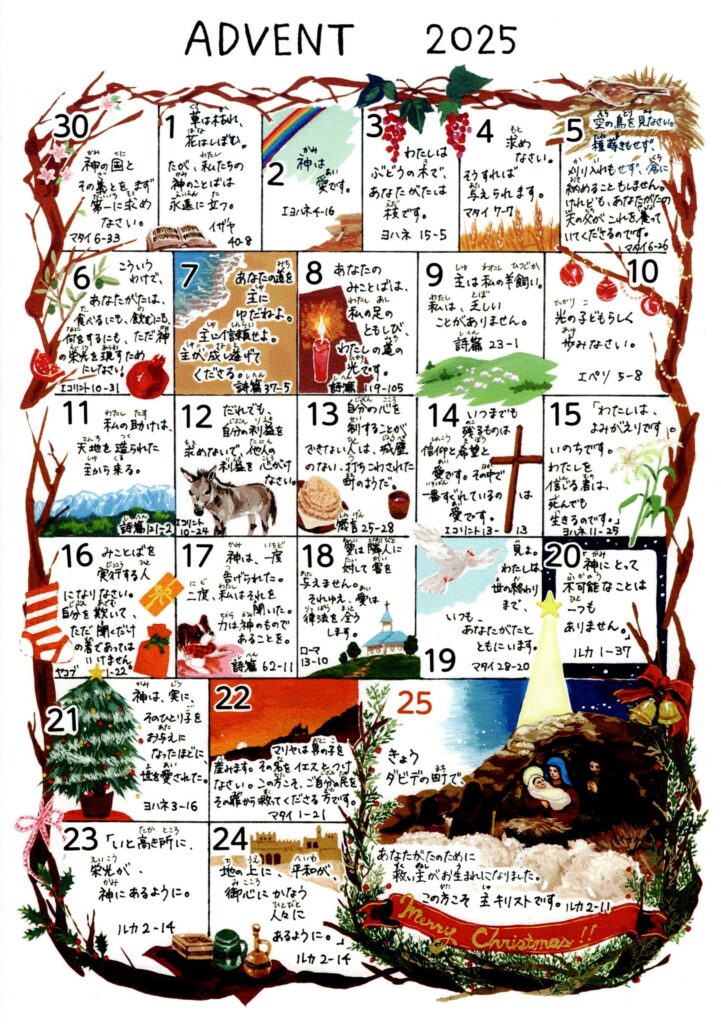 ADVENT 2025
30
神の国と
その義とをまず
第一に求め
なさい。
マタイ6-33
1
草は枯れ、
花はしぼむ。
だが、私たちの
神のことばは
永遠に立つ。
イザヤ
40-8
2
神は
愛です。
Iヨハネ4-16
3
わたしは
ぶどうの木で、
あなたがたは
枝です。
ヨハネ 15-5
4
求め
なさい。
そうすれば
与えられます。
マタイ 7-7
5
空の鳥を見なさい。
種蒔きもせず、
刈り入れもせず、倉に
納めることもしません。
けれども、あなたがたの
天の父がこれを養って
いてくださるのです。
マタイ6-26
6
こういう
わけで、
あなたがたは、
食べるにも、飲むにも、
何をするにも、ただ神
の栄光を現すため
にしなさい。
Iコリント10-31
7
あなたの道を
主に
ゆだねよ。
主に信頼せよ。
主が成し遂げて
くださる。
詩篇37-5
8
あなたの
みことばは、
私の足の
ともしび、
わたしの道の
光です。
詩篇119-105
9
主は私の羊飼い。
私は、乏しい
ことがありません。
詩篇 23-1
10
光の子どもらしく
歩みなさい。
エペソ 5-8
11
私の助けは、
天地を造られた
主から来る。
詩篇121-2
12
だれでも、
自分の利益を
求めないで、他人の
利益を心がけ
なさい。
Iコリント
10-24
13
自分の心を
制することが
できない人は、城壁
のない、打ちこわされた
町のようだ。
箴言25-28
14
いつまでも
残るものは
信仰と希望と
愛です。その中で
一番すぐれているのは
愛です。
Iコリント13-13
15
「わたしは、
よみがえりです。
いのちです。
わたしを
信じる者は、
死んでも
生きるのです。」
ヨハネ11-25
16
みことばを
実行する人
になりなさい。
自分を欺いて、
ただ聞くだけ
の者であっては
いけません。
ヤコブ 1-22
17
神は、一度
告げられた。
二度、私はそれを
聞いた。
力は神のもので
あることを。
詩篇 62-11
18
愛は隣人に
対して害を
与えません。
それゆえ、愛は
律法を全う
します。
ローマ
13-10
見よ。
わたしは、
世の終わり
まで、
いつも、
あなたがたと
ともにいます。
19
マタイ28-20
20
「神にとって
不可能なことは
一つも
ありません。」
ルカ 1-37
21
神は、実に、
そのひとり子を
お与えに
なったほどに、
世を愛された。
ヨハネ3-16
22
マリヤは男の子を
産みます。その名をイエスとつけ
なさい。この方こそ、ご自分の民を
その罪から救ってくださる方です。
マタイ 1-21
23
「いと高き所に、
栄光が、
神にあるように。
ルカ 2-14
24
地の上に、平和が、
御心にかなう
人々に
あるように。」
ルカ 2-14
25
きょう
ダビデの町で、
あなたがたのために
救い主がお生まれになりました。
この方こそ 主キリストです。ルカ 2-11
Merry Christmas!!